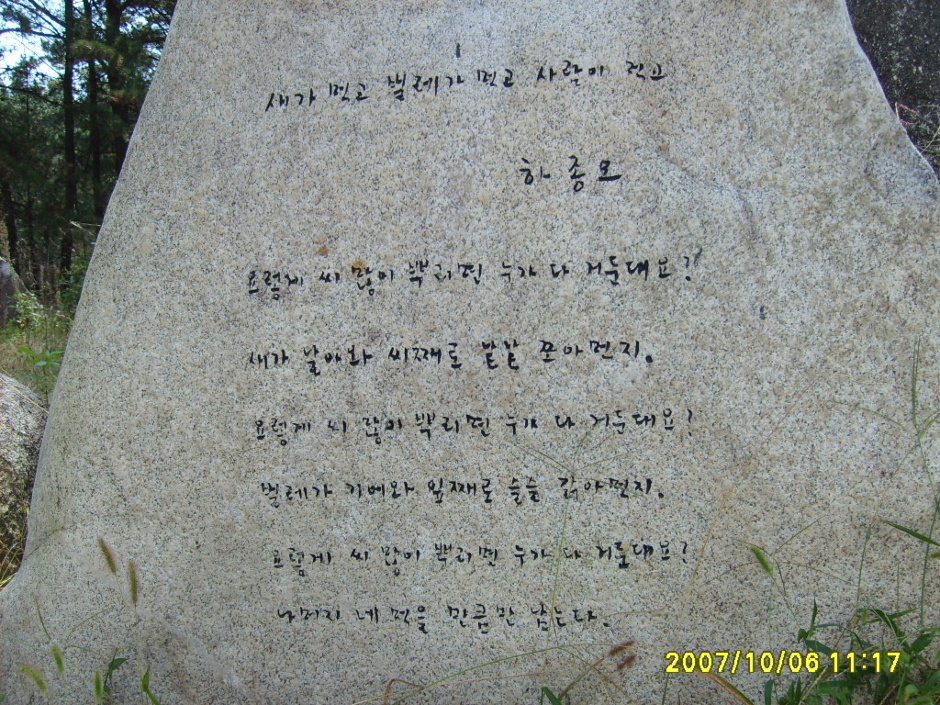 새가 먹고 벌레가 먹고 사람이 먹고
하종오
요렇게 씨 많이 뿌리면 누가 다 거둔대요?
새가 날아와 씨째로 낱낱 쪼아먹지.
요렇게 씨 많이 뿌리면 누가 다 거둔대요?
벌레가 기어와 잎째로 슬슬 갉아먹지.
요렇게 씨 많이 뿌리면 누가 다 거둔대요?
나머지 네 먹을 만큼만 남는다.
2007/10/06 11:17